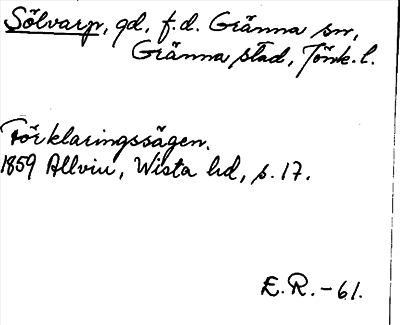 Sölvarp, gd, f.d. Gränna sn,
Gränna stad, Jönk. l.
Förklaringssägen.
1859 Allvin, Wista hd, s. 17.
E.R. - 61.